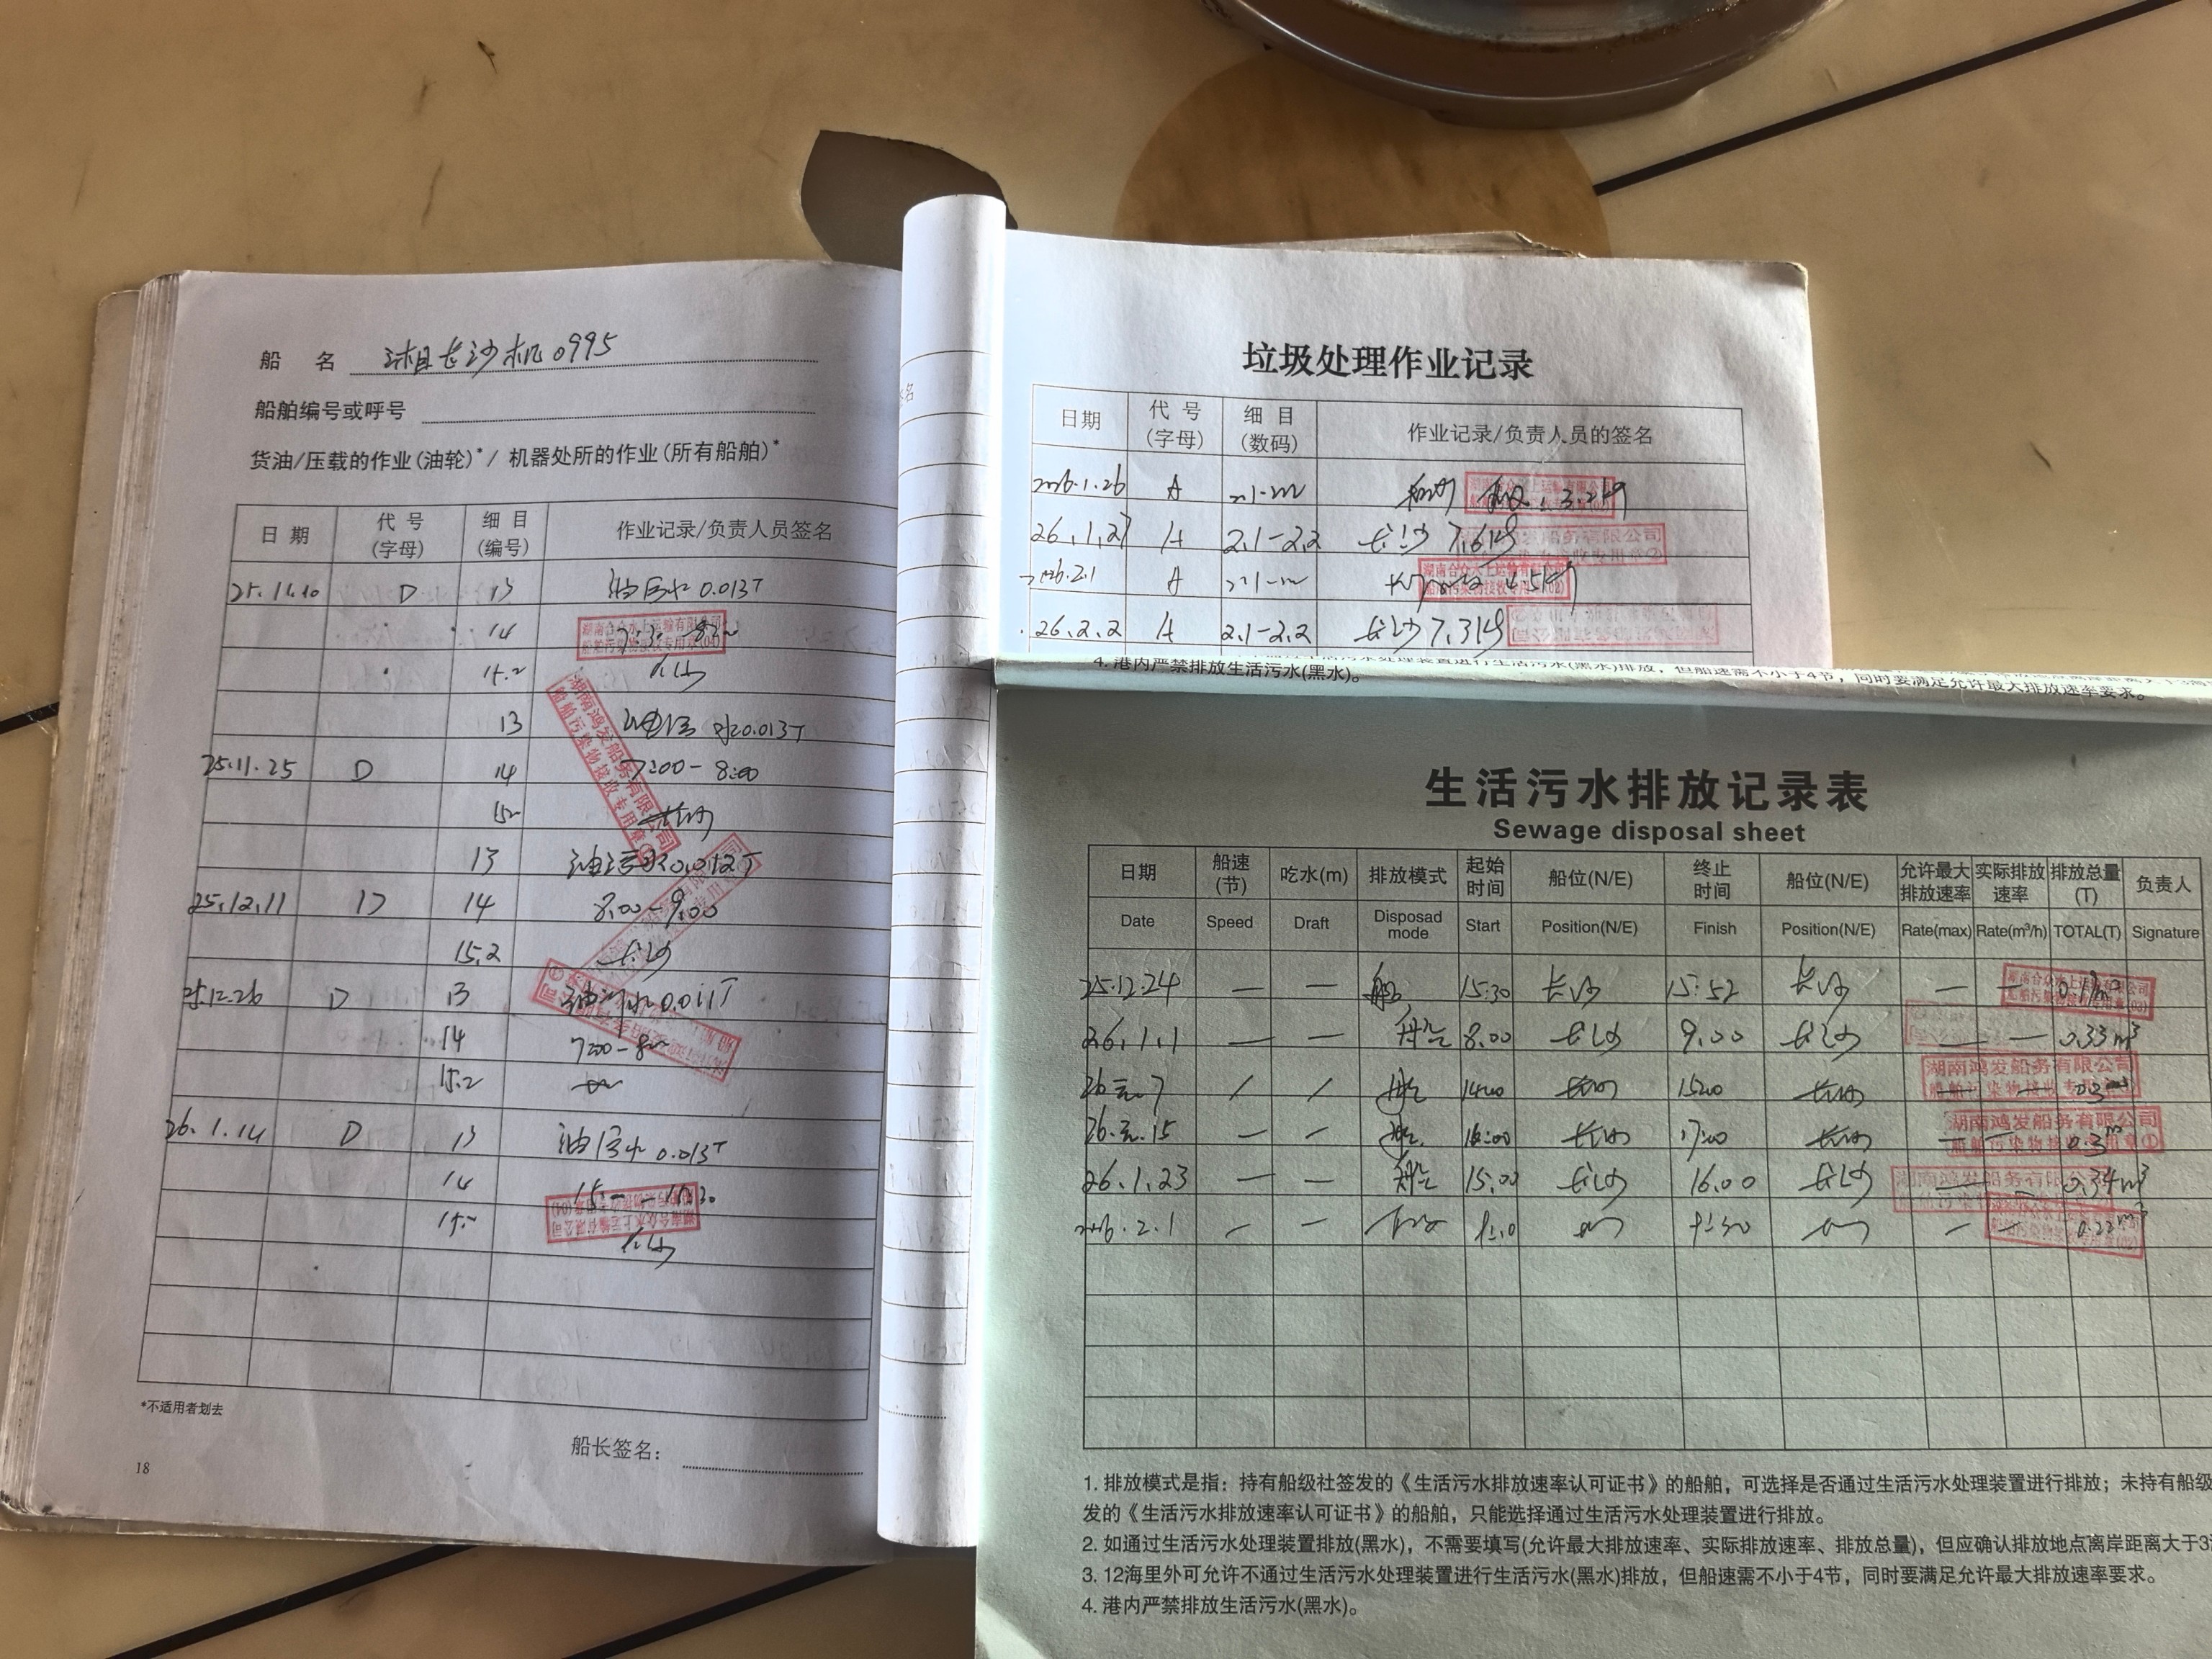 船 名 湘长沙机0995
船舶编号或呼号
货油/压载的作业(油轮)*/ 机器处所的作业(所有船舶)*
日 期 代 号 (字母) 细 目 (编号) 作业记录/负责人员签名
25.11.10 D 13 油污水 0.013T
14
15.2 长沙
13 油污水0.013T
25.11.25 D 14 7:00-8:00
15.2 长沙
13 油污水0.012T
25.12.11 D 14 8.00-9.00
15.2 长沙
25.12.26 D 13 油污水 0.011T
14
15.2
26.1.14 D 13 油污水 0.013T
14
15.2 长沙
湖南合众水上运输有限公司
船舶污染物接收专用章(04)
湖南鸿发船务有限公司
船舶污染物接收专用章
*不适用者划去
船长签名:
18
垃圾处理作业记录
日期 代 号 (字母) 细 目 (数码) 作业记录/负责人员的签名
2026.1.26 A 3.2kg
26.1.27 A 2.1-2.2 长沙 7.6kg
2026.2.1 A 4.5kg
26.2.2 A 2.1-2.2 长沙7.3kg
4. 港内严禁排放生活污水(黑水)。
但船速需不小于4节，同时要满足允许最大排放速率要求。
生活污水排放记录表
Sewage disposal sheet
日期 船速(节) 吃水(m) 排放模式 起始时间 船位(N/E) 终止时间 船位(N/E) 允许最大排放速率 实际排放速率 排放总量(T) 负责人
Date Speed Draft Disposad mode Start Position(N/E) Finish Position(N/E) Rate(max) Rate(m³/h) TOTAL(T) Signature
25.12.24 — — 15:30 长沙 15:52 长沙 — —
26.1.1 — — 8.00 长沙 9.00 长沙 — — 0.33m³
7 / / 1400 长沙 1500 长沙 — — 0.3m³
15 — — 16:00 长沙 17:00 长沙 — 0.3m³
26.1.23 — — 15.00 长沙 16.00 长沙 — — 0.34m³
2026.2.1 — — — — 0.22m³
湖南鸿发船务有限公司
船舶污染物接收专用章①
1. 排放模式是指：持有船级社签发的《生活污水排放速率认可证书》的船舶，可选择是否通过生活污水处理装置进行排放；未持有船级
发的《生活污水排放速率认可证书》的船舶，只能选择通过生活污水处理装置进行排放。
2. 如通过生活污水处理装置排放(黑水)，不需要填写(允许最大排放速率、实际排放速率、排放总量)，但应确认排放地点离岸距离大于3
3. 12海里外可允许不通过生活污水处理装置进行生活污水(黑水)排放，但船速需不小于4节，同时要满足允许最大排放速率要求。
4. 港内严禁排放生活污水(黑水)。